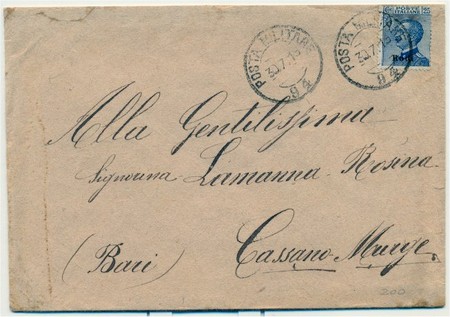 POSTA MILITARE
30.7.15
94
POSTA MILITARE
30.7.15
94
POSTE ITALIANE
Rodi
Alla Gentilissima
Signorina Lamanna Rosina
(Bari) Cassano Murge
200